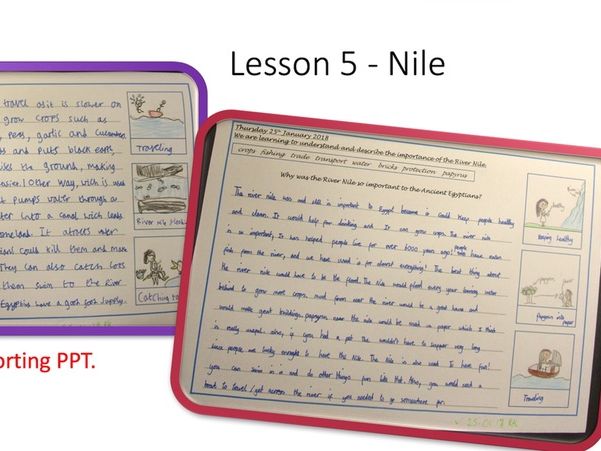 Lesson 5 - Nile
travel as it is slower on
grow crops such as
peas, garlic and cucumber
and puts black
the ground, making
easier. Other way, wich is used
pumps water through
into a canal wich leads
It atracts
could kill them and
They can also catch lots
them swim to the River
Egyptians have a good food supply.
Traveling
River Nile flood
Catching
orting PPT.
Thursday 25th January 2018
We are learning to understand and describe the importance of the River Nile.
crops fishing trade transport water bricks protection papyrus
Why was the River Nile so important to the Ancient Egyptians?
The river nile was and still is important to Egypt because it could keep people healthy
and clean. It would help for drinking and it can grow crops. The river nile
is so important, it has helped people live for over 5000 years ago! people have eaten
fish from the river, and we have used it for almost everything! The best thing about
the river nile would have to be the flood. The nile would flood every year leaving water
behind to grow more crops, mud from near the river would be a good house and
would make great buildings, papyrus near the nile would be made in paper which I think
is really useful, since, if you had a pet the wouldn't have to support very long
since people are lucky enought to have the Nile. The Nile is also used to have fun!
you can swim in it and do other things fun like that. Also, you would need a
boat to travel/get across the river if you needed to go somewhere far.
healthy
keeping healthy
papyrus into paper
Traveling